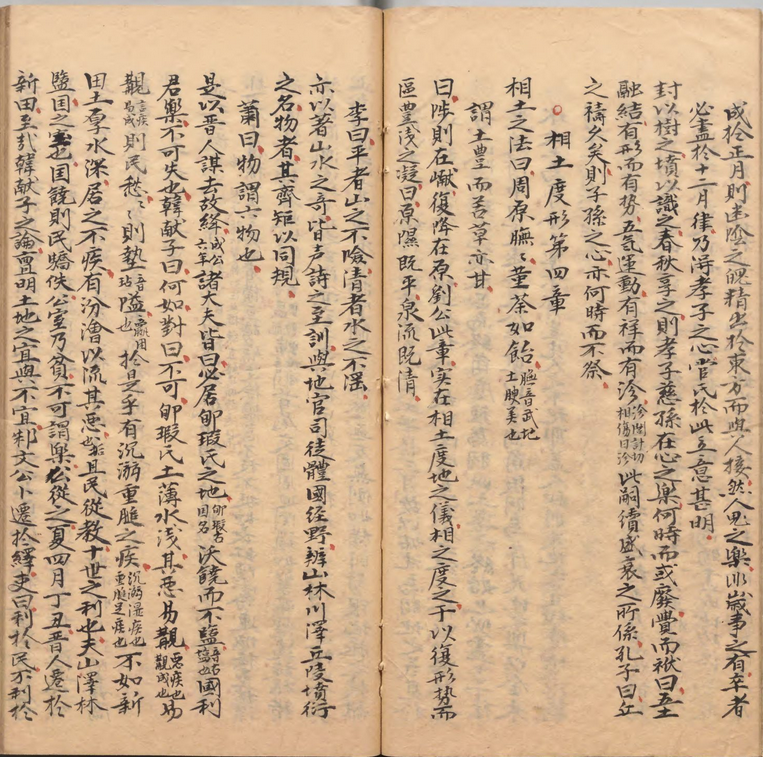 成於正月則幽陰之魄精出於東方而與人接然人鬼之樂非歲事之有卒者
必盡於十二月律乃得孝子之心官氏於此立意甚明
封以樹之墳以識之春秋享之則孝子慈孫在心之樂何時而或廢費而袱曰五土
融結有形而有勢五氣運動有祥而有沴沴閭計切相傷曰沴此嗣續盛衰之所係孔子曰丘
之禱久矣則子孫之心亦何時而不祭
相土度形第四章
相土之法曰周原膴〻堇荼如飴膴音武地土腴美也
謂土豊而苦草亦甘
曰陟則在巘復降在原劉公此章实在相土度地之儀相之度之于以復形勢而
區豊淺之凝曰原隰既平泉流既清
李曰平者山之不險清者水之不滛
亦以著山水之奇皆声詩之至訓與地官司徒體國経野辨山林川澤丘陵墳衍
之名物者其齊矩以同規
蕭曰物謂六物也
是以晋人謀去故絳成公六年諸大夫皆曰必居郇瑕氏之地郇瑕古国名沃饒而不盬國利
君樂不可失也韓献子曰何如對曰不可郇瑕氏土薄水浅其悪易覯悪疾也覯成也易
覯言疾易成則民愁〻則墊隘於是乎有沉溺重膇之疾沉溺湿疾也重膇足疾也不如新
田土厚水深居之不疾有汾澮以流其悪也且民從教十世之利也夫山澤林
盬国之宝也国饒則民驕佚公室乃貧不可謂樂公從之夏四月丁丑晋人遷於
新田至哉韓献子之論亶明土地之宜與不宜邾文公卜遷於繹史曰利於民不利於